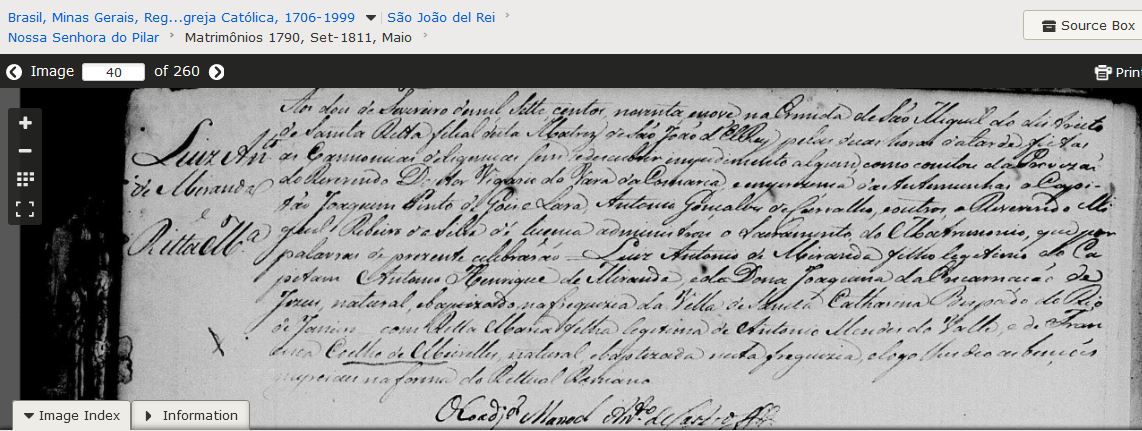 Brasil, Minas Gerais, Reg...greja Católica, 1706-1999 São João del Rei
Nossa Senhora do Pilar Matrimônios 1790, Set-1811, Maio
Source Box
Image 40 of 260
Print
Aos dous de Fevereiro de mil sette centos, noventa e nove na Ermida de São Miguel do districto
de Santa Ritta filial desta Matriz de São João d'El Rey pelas duas horas da tarde, feitas
Luiz Anto as Canonicas deligencias sem se descubrir impedimento algum, como constou da Provizaó
de Miranda do Reverendo Doutor Vigario da Vara da Comarca, e em prezença das testemunhas o Capi-
tão Joaquim Pinto de Góis e Lara, Antonio Gonçalves de Carvalho, e outros, o Reverendo Mi-
e
Ritta Ma. guel Ribeiro da Silva de licença administrou o Sacramento do Matrimonio, que por
palavras de prezente celebrarão = Luiz Antonio de Miranda filho legitimo do Ca
pitam Antonio Henrique de Miranda, e da Dona Joaquina da Encarnacaó de
Jezus, natural, e bapeizado na freguezia da Villa de Santa Catharina Bispado do Rio
de Janeiro com Ritta Maria filha legitima de Antonio Mendes do Valle, e de Fran
cisca Coelho de Meirelles, natural, e baptizada nesta freguezia, e logo lhes deo as bençóis
nupciaes na forma do Rittual Romano
O Coadjor Manoel Anto. de Castro
Image Index Information